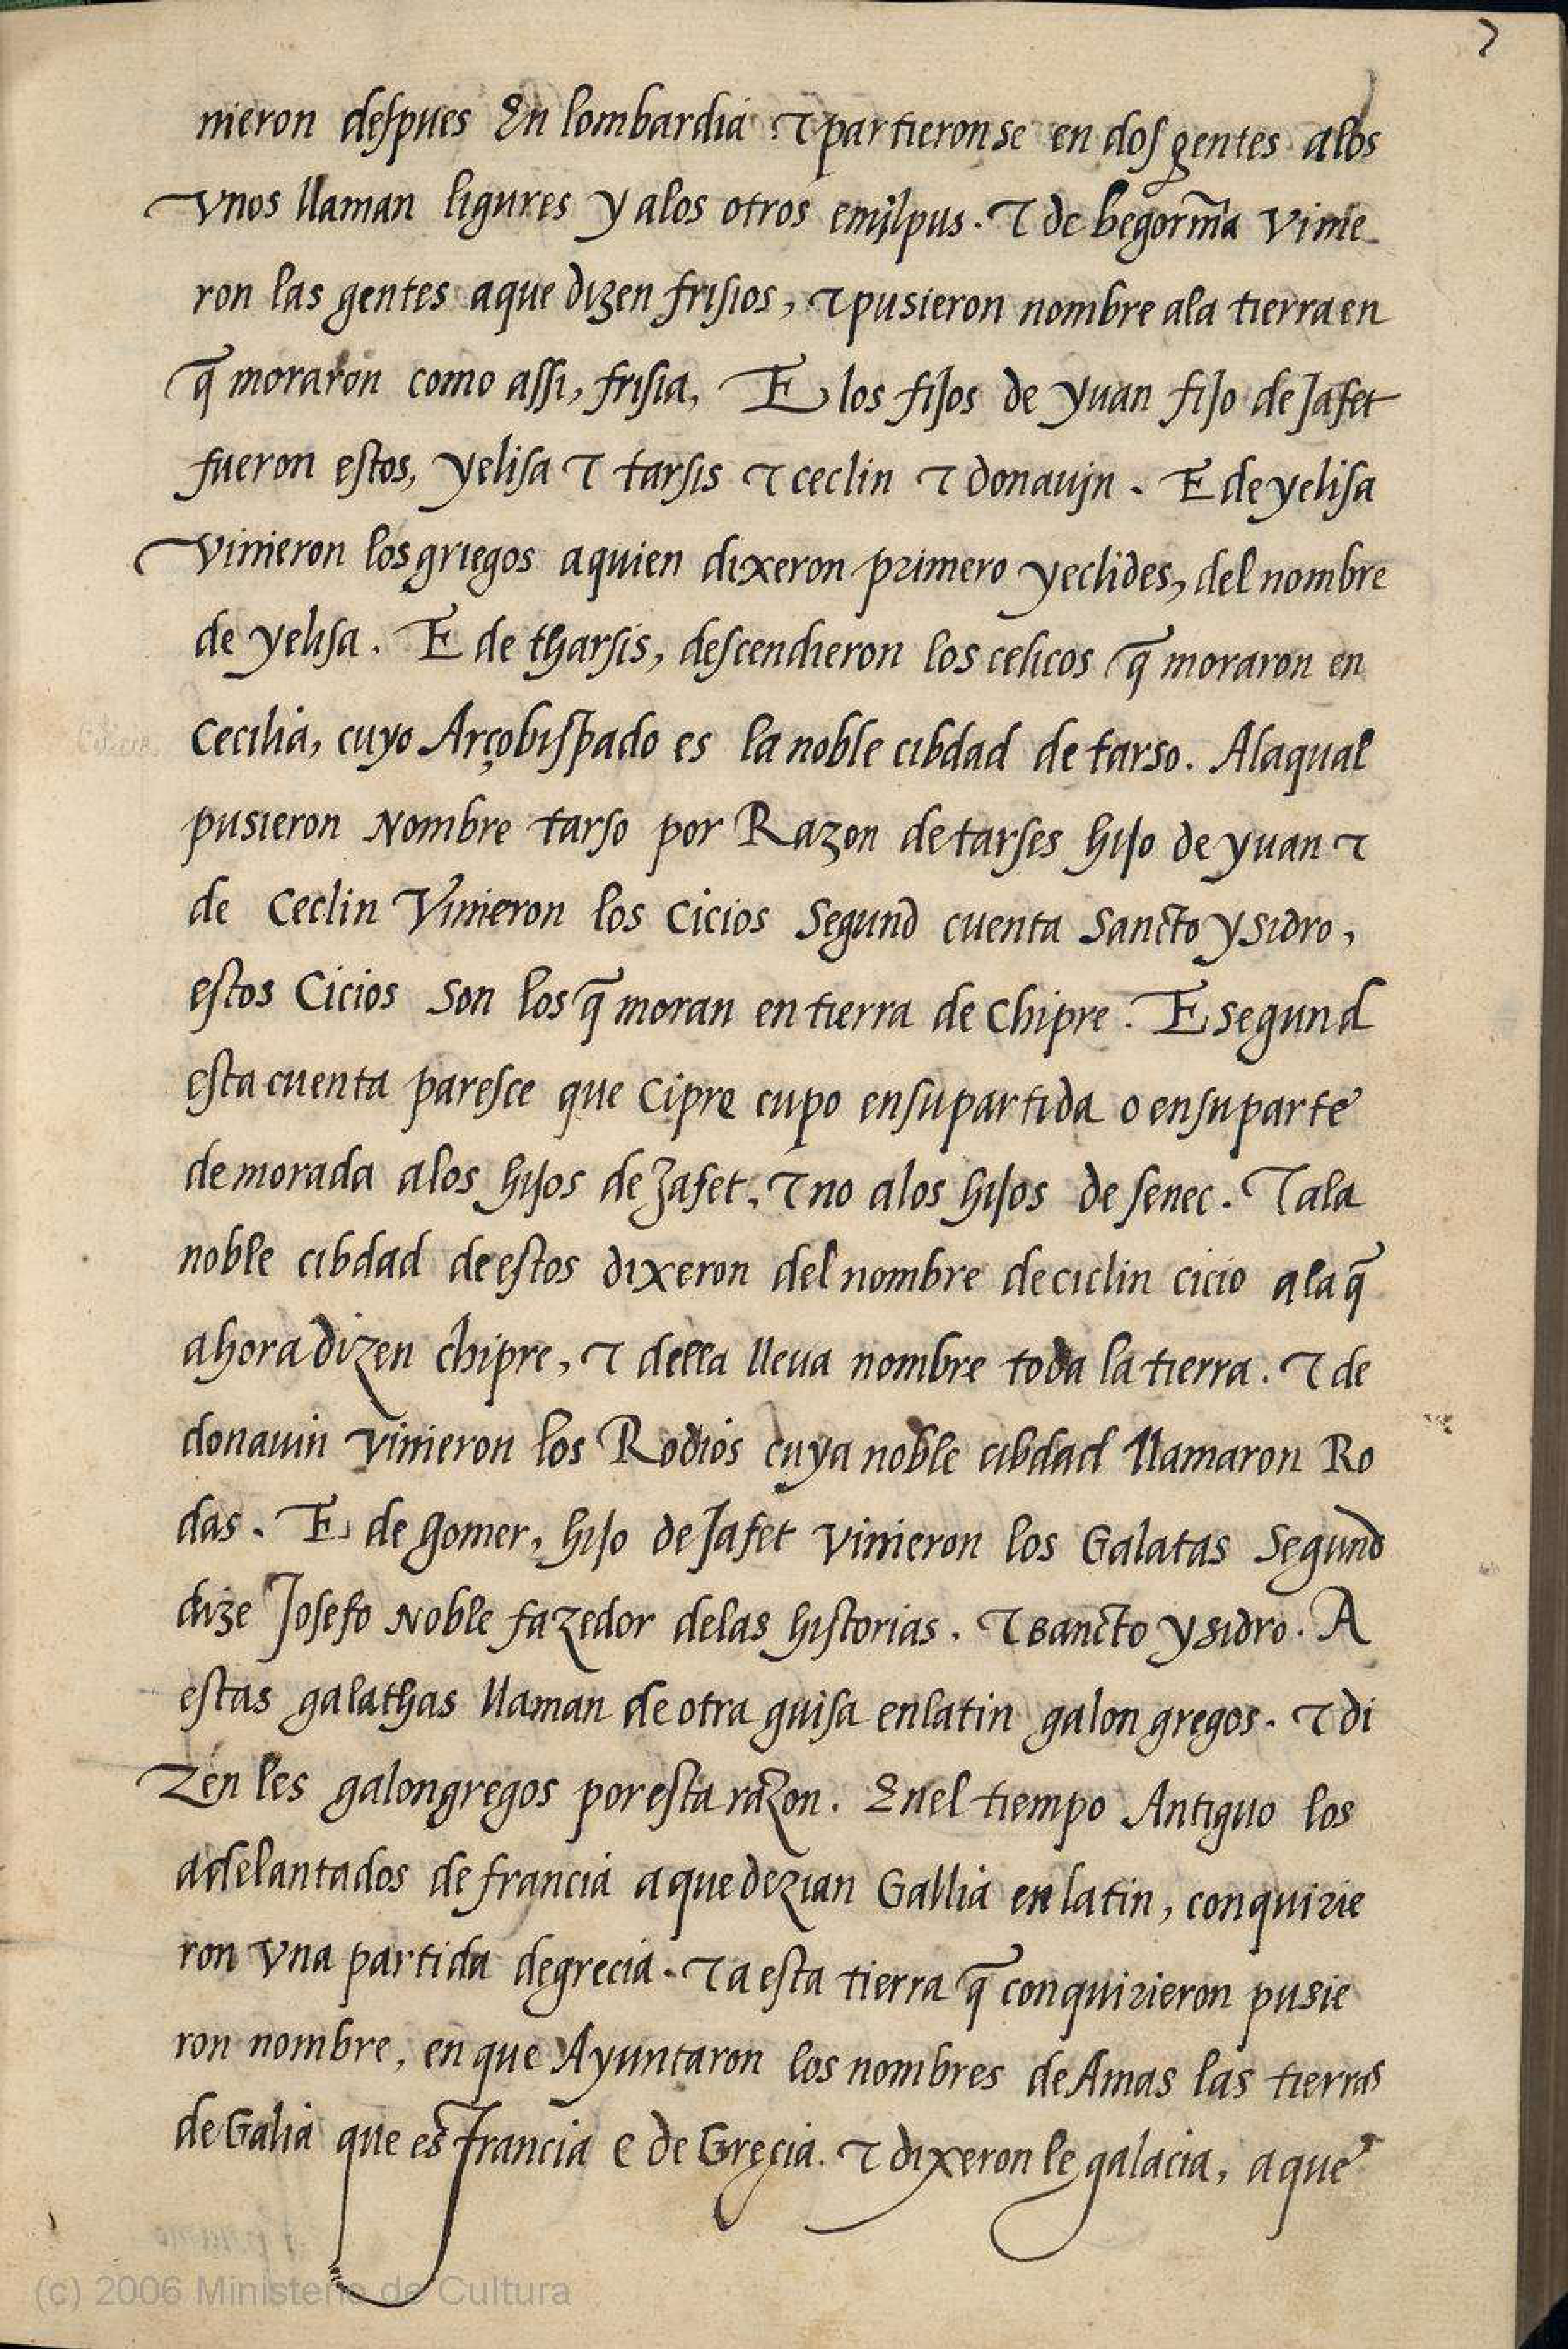 2
nieron despues En lombardia. τ partieronse en dos gentes alos
vnos llaman ligures y alos otros emilpus. τ de begorm̃a vinie
ron las gentes aque dizen frisios, τ pusieron nombre ala tierra en
q̃ moraron como assi, frisia, E los fijos de yuan fijo de Jafet
fueron estos, yelisa τ tarsis τ ceclin τ donauin. E de yelisa
vinieron los griegos aquien dixeron primero yeclides, del nombre
de yelisa. E de tharsis, descendieron los celicos q̃ moraron en
Cecilia, cuyo Arçobispado es la noble cibdad de tarso. Alaqual
pusieron Nombre tarso por Razon de tarses hijo de yuan τ
de Ceclin Vinieron los Cicios Segund cuenta Sancto ysidro,
estos Cicios Son los q̃ moran en tierra de Chipre. E segund
esta cuenta paresce que Cipre cupo ensu partida o ensu parte
de morada alos hijos de Jafet, τ no alos hijos de senec. τ ala
noble cibdad de estos dixeron del nombre de ciclin cicio ala q̃
ahora dizen chipre, τ della lleua nombre toda la tierra. τ de
donauin vinieron los Rodios cuya noble cibdad llamaron Ro
das. E de gomer, hijo de Jafet vinieron los Galatas Segund
dize Josefo Noble fazedor delas historias. τ sancto ysidro. A
estas galathas llaman de otra guisa en latin galon gregos. τ di
zen les galongregos por esta razon. En el tiempo Antiguo los
adelantados de francia aque dezian Gallia en latin, conquirie
ron vna partida de grecia. τ a esta tierra q̃ conquirieron pusie
ron nombre, en que Ayuntaron los nombres de Amas las tierras
de Galia que es francia e de Grecia. τ dixeron le galacia, aque
(c) 2006 Ministerio de Cultura